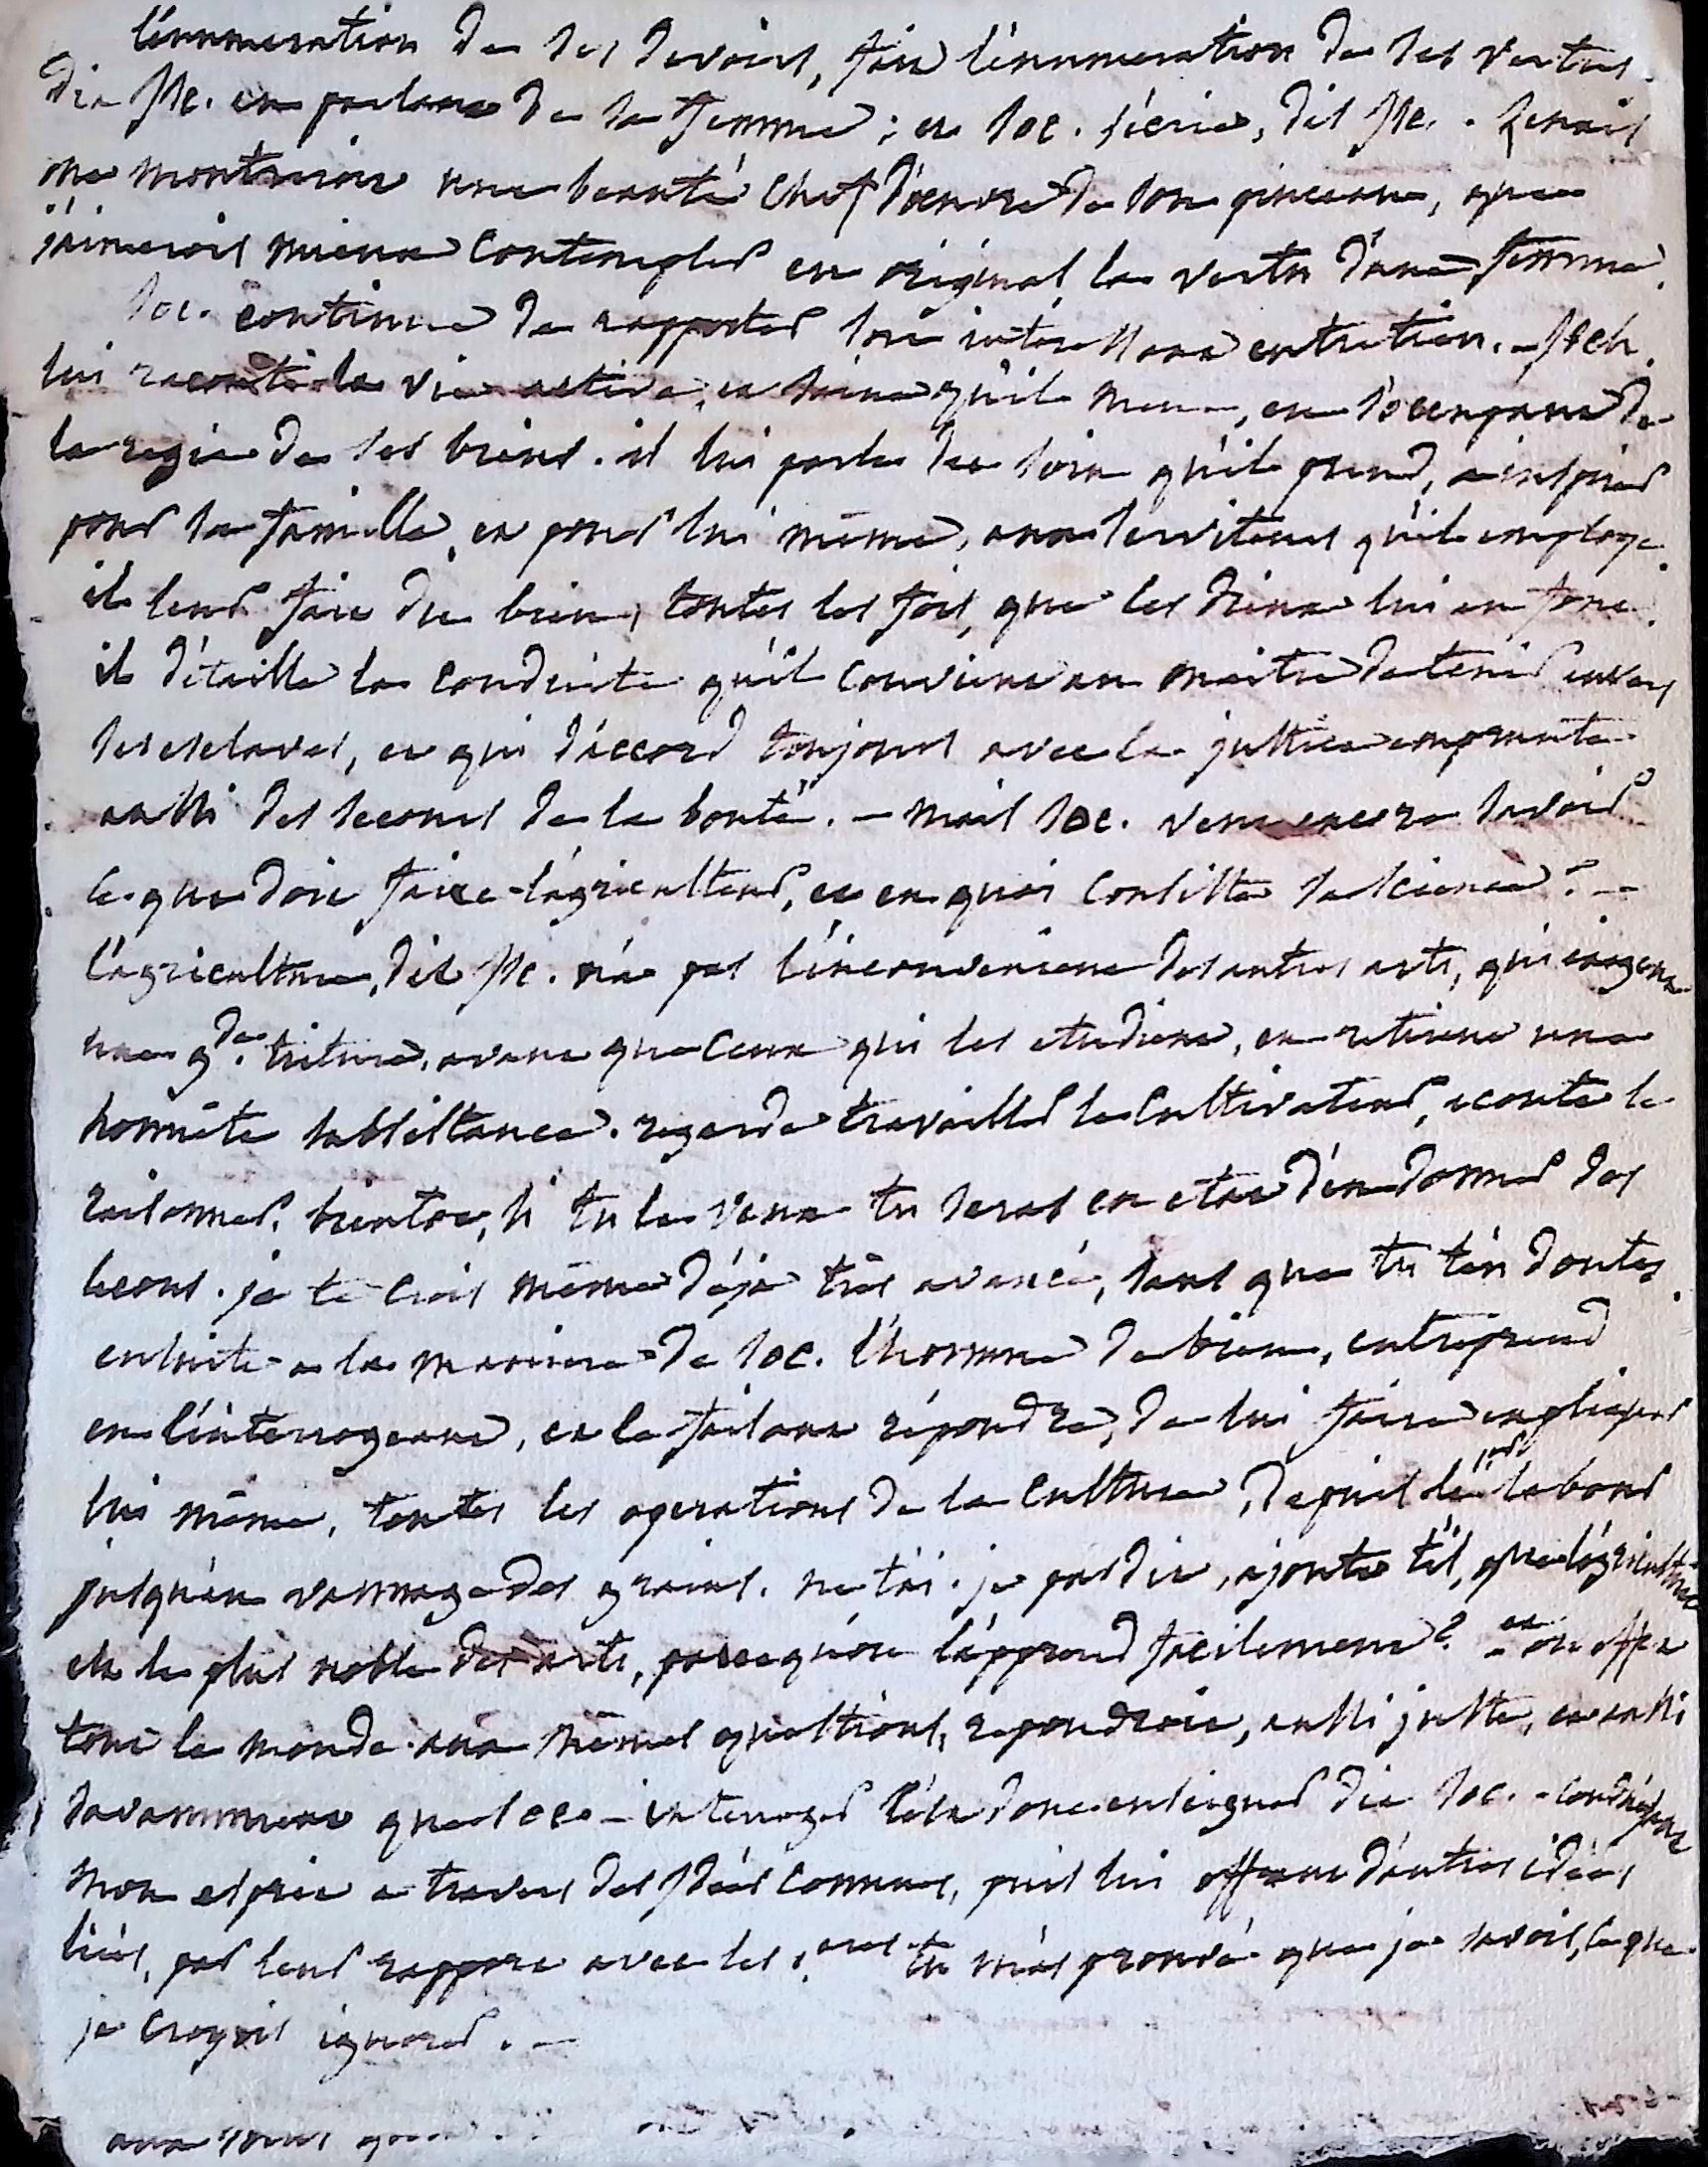 l'enumeration de ses devoirs, fait l'enumeration de ses vertus.
dit Isc. en parlant de sa femme ; et Soc. s'ecrie, dit Isc. . Zeuxis
me montreroit une beauté chef d'oeuvre de son pinceau, que
j'aimerois mieux contempler en original, la vertu d'une femme.
Soc. continue de rapporter son interessant entretien. - Isch.
lui raconte la vie active, et saine qu'il mene, en s'occupant de
la regie de ses biens. il lui parle du soin qu'il prend, d'inspirer
pour sa famille, et pour lui même, aux serviteurs qu'il employe.
il leur fait du bien, toutes les fois, que les dieux lui en font.
il détaille la conduite qu'il convient au maitre de tenir envers
ses esclaves, et qui d'accord toujours avec la justice emprunte
aussi des secours de la bonté. - mais Soc. veut encore savoir
ce que doit faire l'agriculteur, et en quoi consiste sa science ? -
l'agriculture, dit Isc. n'a pas l'inconvenient des autres arts, qui exigent
une gde. triture, avant que ceux qui les etudient, en retirent une
honnête subsistance. regarde travailler le cultivateur, ecoute le
raisonner. bientot, si tu le veux tu seras en etat d'en donner des
lecons. je te crois même déja très avancé, sans que tu t'en doutes.
ensuite a la maniere de Soc. l'homme de bien, entreprend
en l'interrogeant, et le faisant répondre, de lui faire expliquer
lui même, toutes les operations de la culture, depuis le 1er labour
jusqu'au vannage des grains. ne t'ai-je pas dit, ajoute t'il, que l'agriculture
est le plus noble des arts, parcequ'on l'apprend facilement ? - et en effet
tout le monde aux mêmes questions, repondroit, aussi juste, et aussi
savamment que Soc - interroger c'est donc enseigner dit Soc. - conduisant
mon esprit a travers des idées connues, puis lui offrant d'autres idées
liées, par leur rapport avec les 1eres tu m'as prouvé que je savois, ce que
je croyois ignorer. -